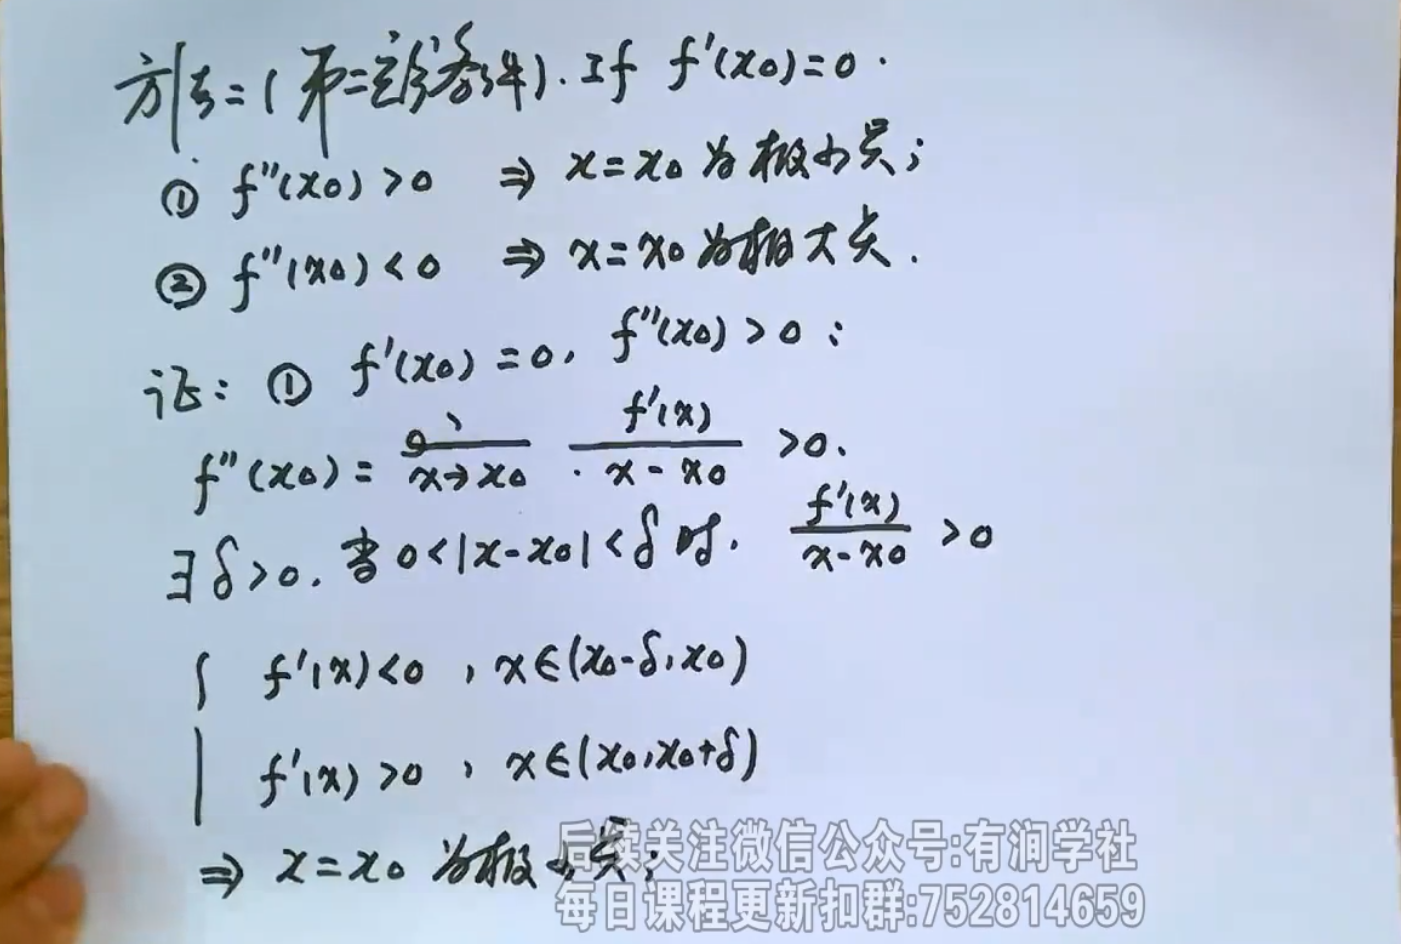 方法二(第二充分条件). If f'(x0)=0.
① f''(x0)>0 ⇒ x=x0 为极小点;
② f''(x0)<0 ⇒ x=x0 为极大点.
证: ① f'(x0)=0, f''(x0)>0:
f''(x0)= lim x→x0 f'(x)/(x-x0) >0.
∃δ>0, 当0<|x-x0|<δ时, f'(x)/(x-x0) >0
{ f'(x)<0, x∈(x0-δ,x0)
f'(x)>0, x∈(x0,x0+δ)
⇒ x=x0 为极小点;
后续关注微信公众号:有润学社
每日课程更新扣群:752814659